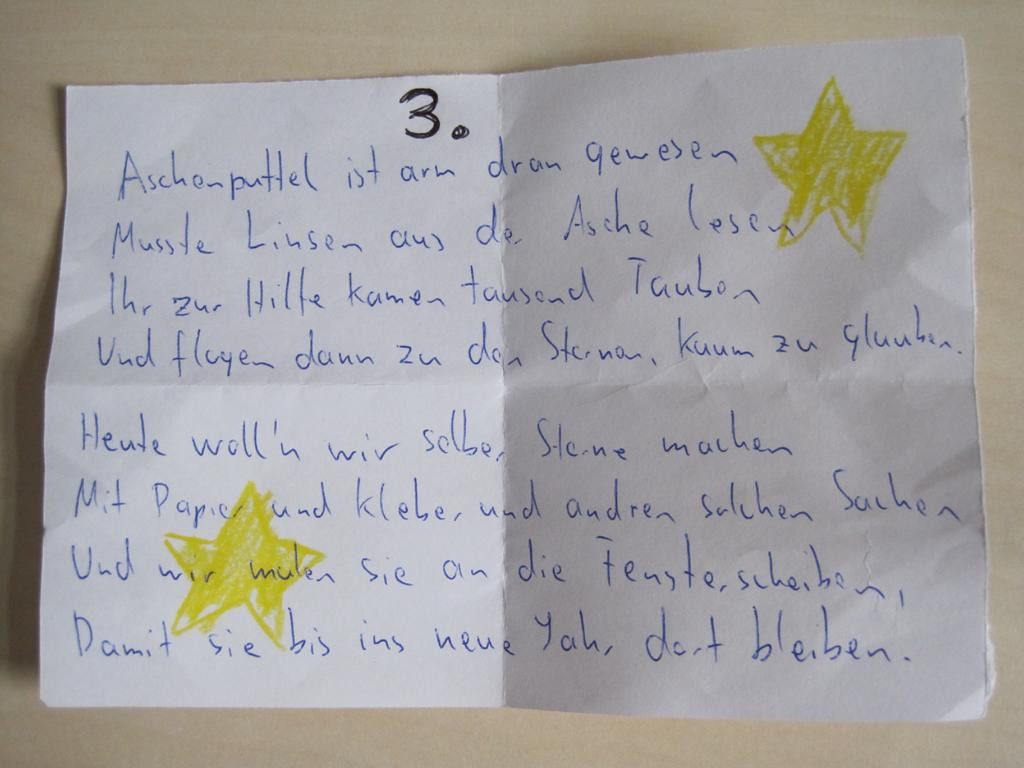 3.
Aschenputtel ist arm dran gewesen
Musste Linsen aus der Asche lesen
Ihr zur Hilfe kamen tausend Tauben
Und flogen dann zu den Sternen, kaum zu glauben.
Heute woll'n wir selber Sterne machen
Mit Papier und Kleber und andren solchen Sachen
Und wir malen sie an die Fensterscheiben,
Damit sie bis ins neue Jahr dort bleiben.